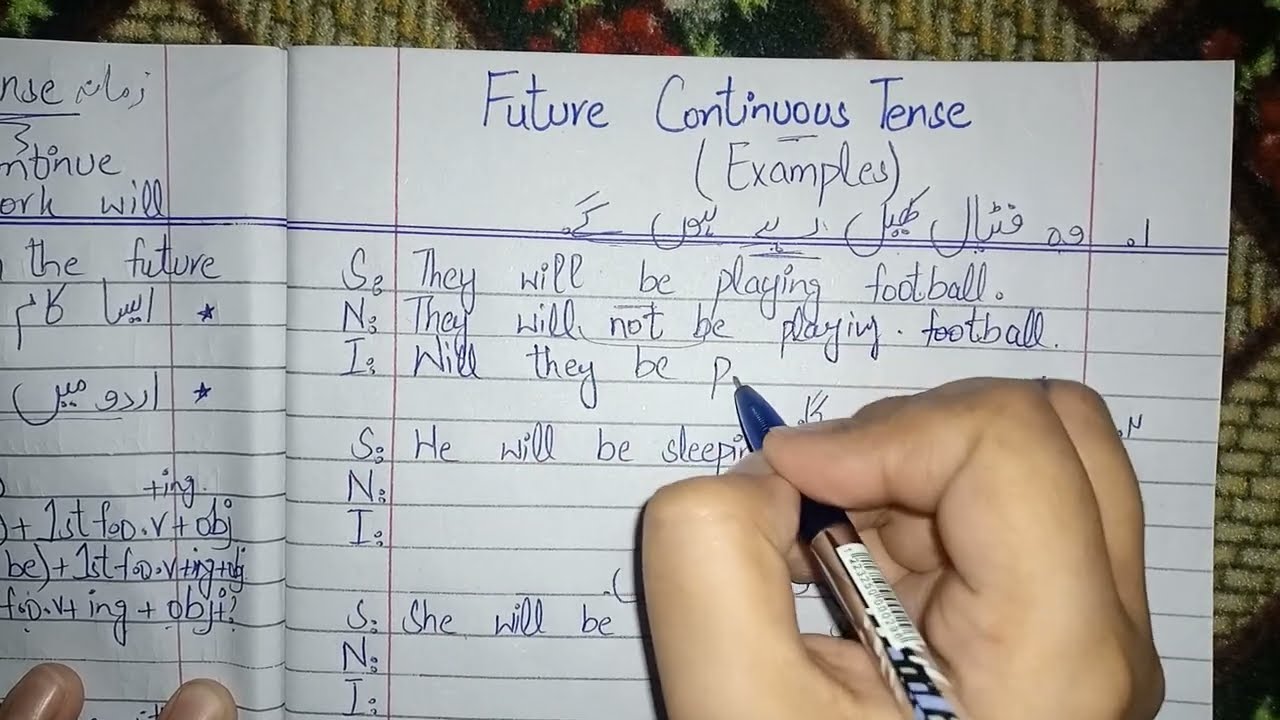 nse زمانہ
ntinue
ork will
the future
ایسا کام *
اردو میں *
+ing.
) + 1st foo.v + obj
be) + 1st foo.v + ing + obj
foo.v + ing + obj + ?
Future Continuous Tense
(Examples)
۱. وہ فٹبال کھیل رہے ہوں گے۔
S: They will be playing football.
N: They will not be playing. football.
I: Will they be p
۲. گا۔
S: He will be sleepin
N:
I:
S: She will be
N:
I: